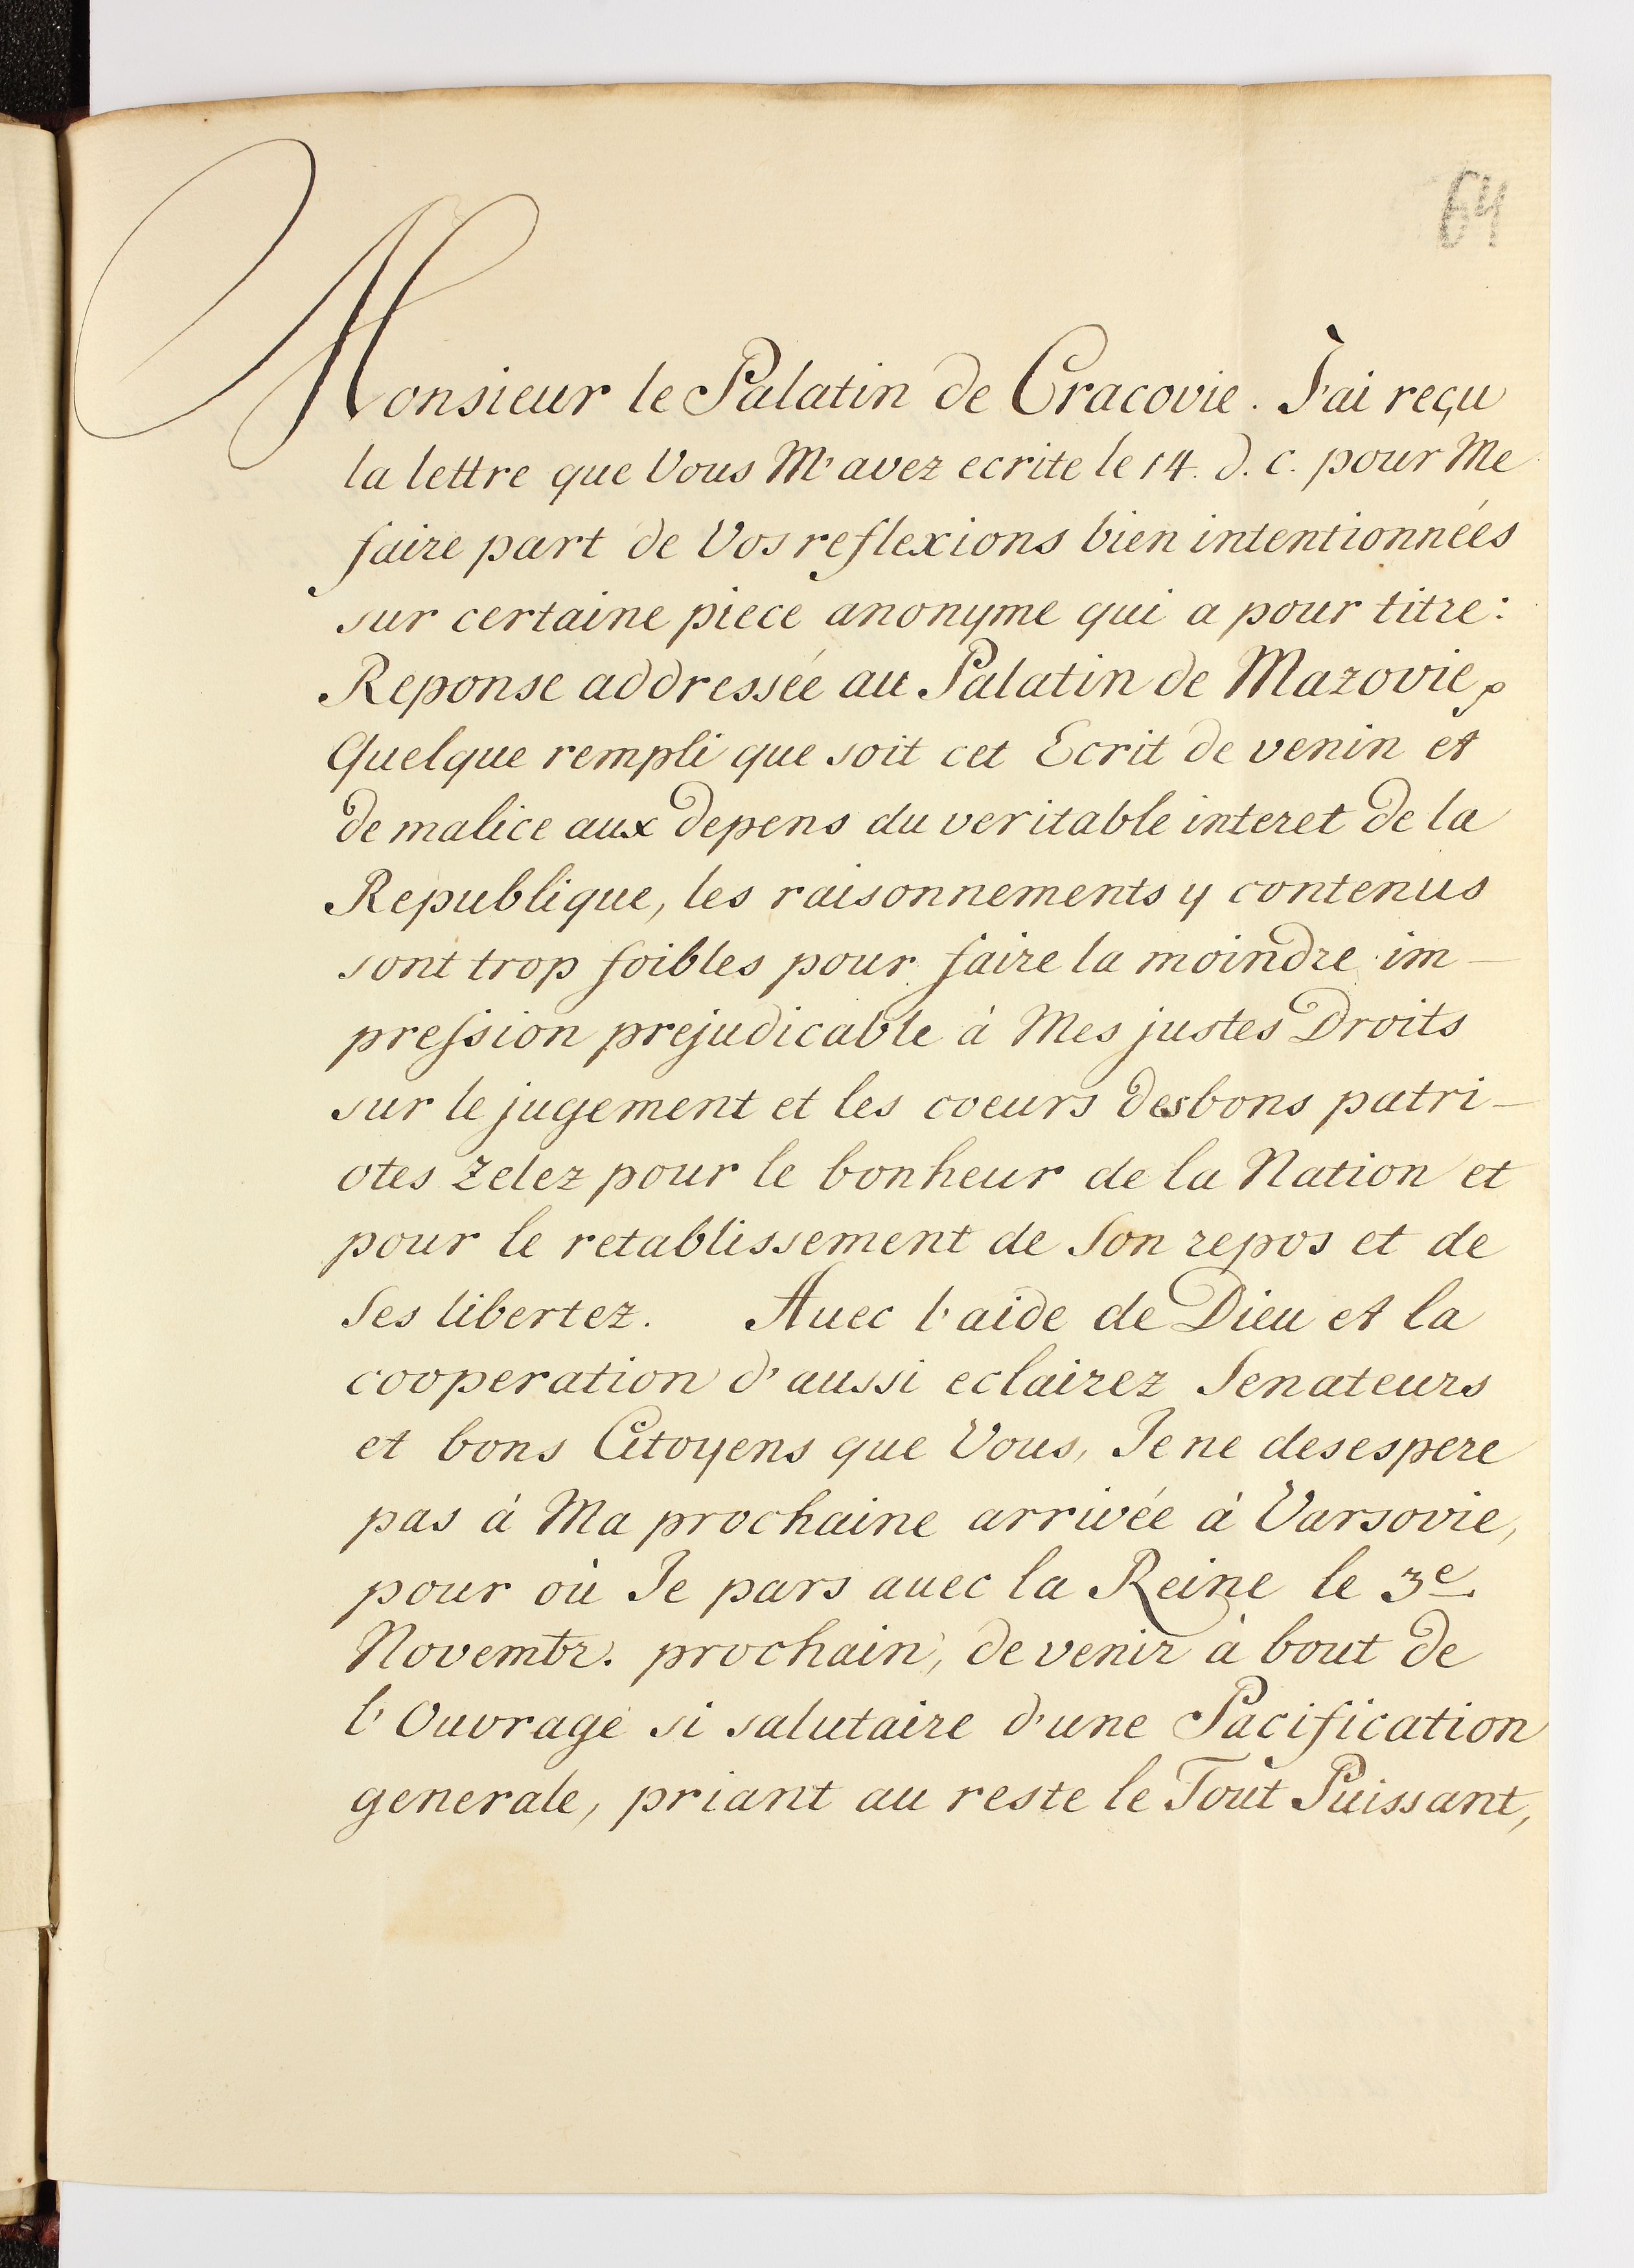 64
Monsieur le Palatin de Cracovie. J'ai reçu
la lettre que Vous M'avez ecrite le 14. d. c. pour Me
faire part de Vos reflexions bien intentionnées
sur certaine piece anonyme qui a pour titre:
Reponse addressée au Palatin de Mazovie,
Quelque rempli que soit cet Ecrit de venin et
de malice aux depens du veritable interet de la
Republique, les raisonnements y contenus
sont trop foibles pour faire la moindre im-
preſsion prejudicable à Mes justes Droits
sur le jugement et les coeurs des bons patri-
otes zelez pour le bonheur de la Nation et
pour le retablissement de Son repos et de
Ses libertez. Auec l'aide de Dieu et la
cooperation d'aussi eclairez Senateurs
et bons Citoyens que Vous, Je ne desespere
pas à Ma prochaine arrivée à Varsovie,
pour où Je pars auec la Reine le 3e
Novembr. prochain, de venir à bout de
l'Ouvrage si salutaire d'une Pacification
generale, priant au reste le Tout Puissant,